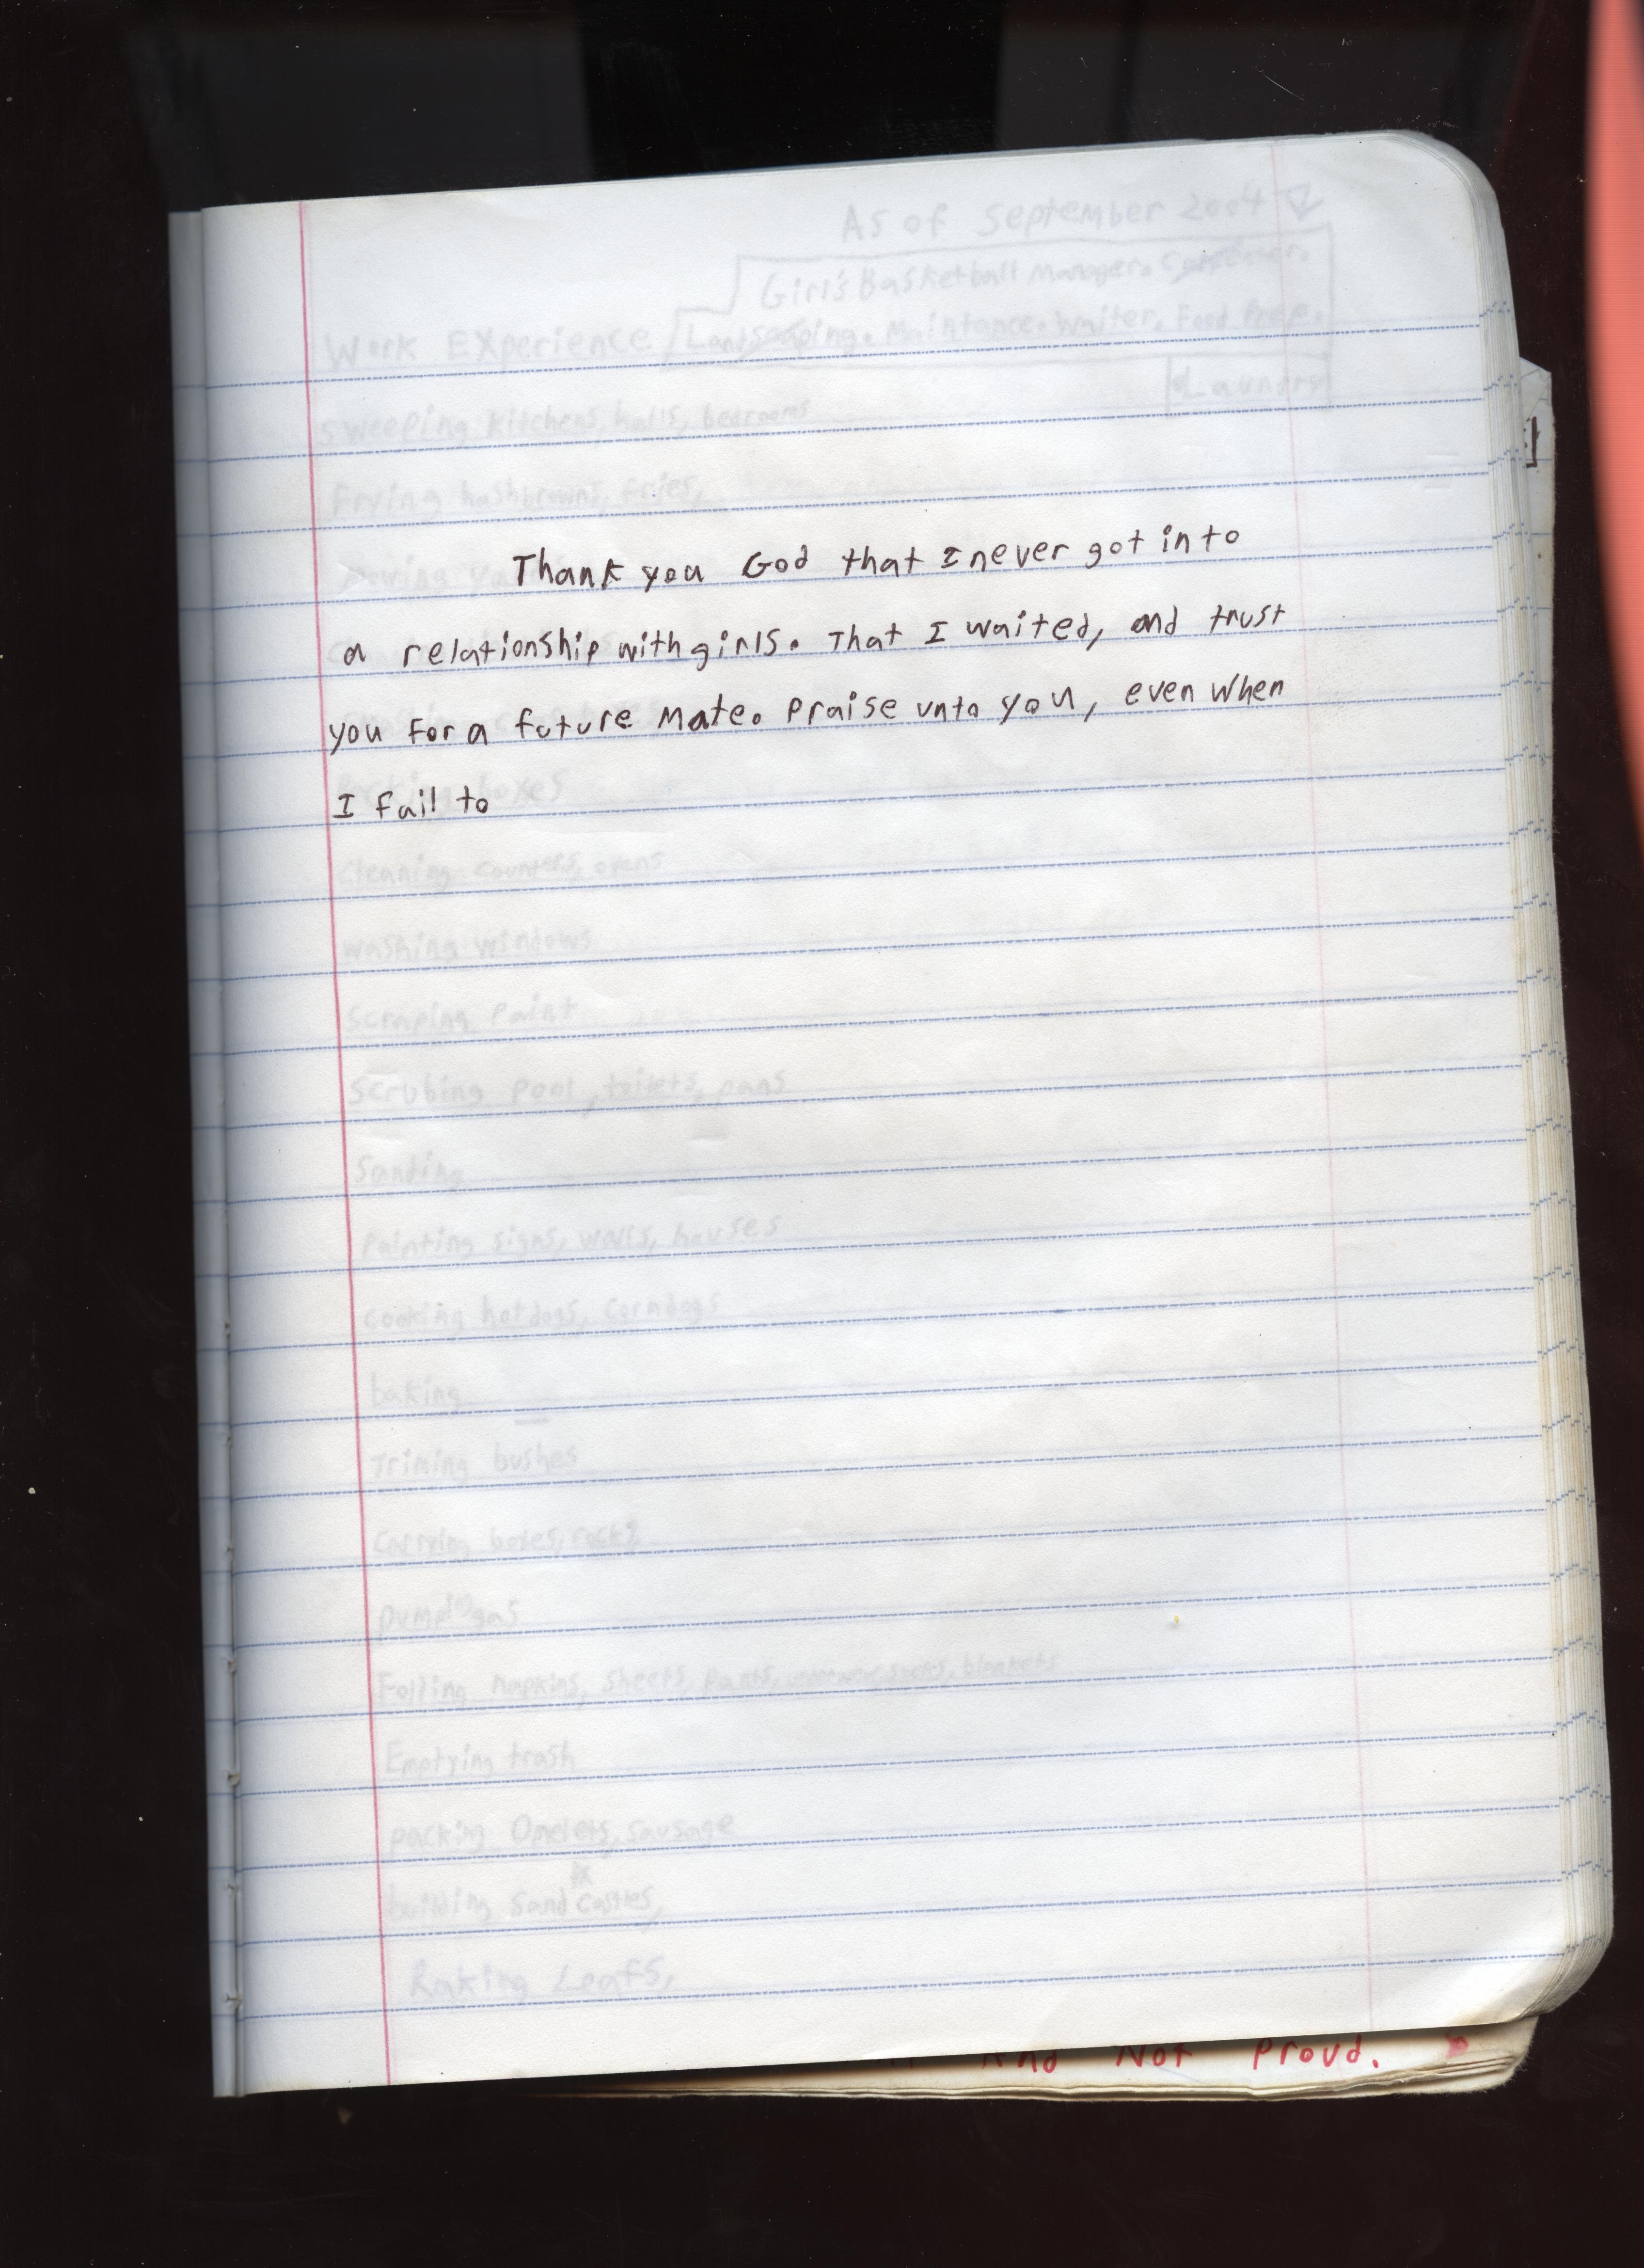 As of September 2004
Girl's Basketball Manager.
Work Experience Landscaping. Maintance. Waiter. Food Prep.
Laundry
Sweeping kitchens, halls, bedrooms
Frying hashbrowns, fries,
Thank you God that I never got into
a relationship with girls. That I waited, and trust
you for a future mate. Praise unto you, even when
I fail to
boxes
Cleaning counters, ovens
washing windows
Scraping Paint
Scrubing pool, toilets, pans
Sanding
Painting signs, walls, houses
cooking hotdogs, corndogs
baking
Triming bushes
Carrying boxes, rocks
pumping gas
Folding napkins, sheets, pants, socks, blankets
Emptying trash
packing Omelets, sausage
building Sand Castles,
Raking Leafs,
And Not Proud.